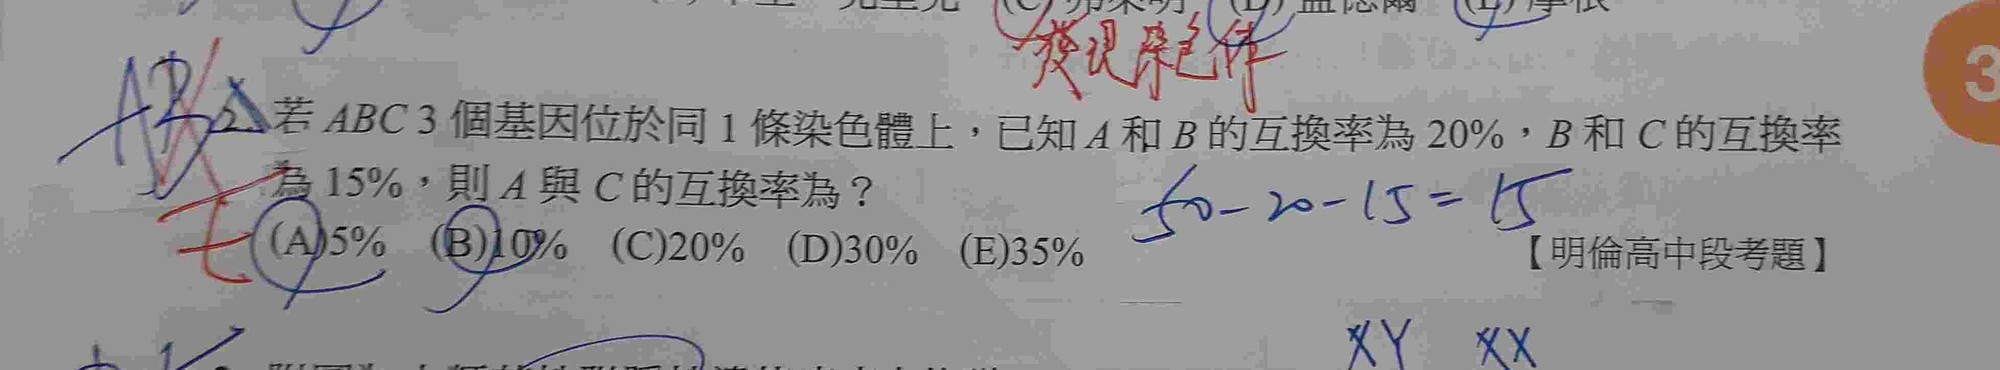 發現染色体
3
2. 若 ABC 3 個基因位於同 1 條染色體上，已知 A 和 B 的互換率為 20%，B 和 C 的互換率
為 15%，則 A 與 C 的互換率為？
50-20-15=15
(A)5% (B)10% (C)20% (D)30% (E)35%
【明倫高中段考題】
XY XX